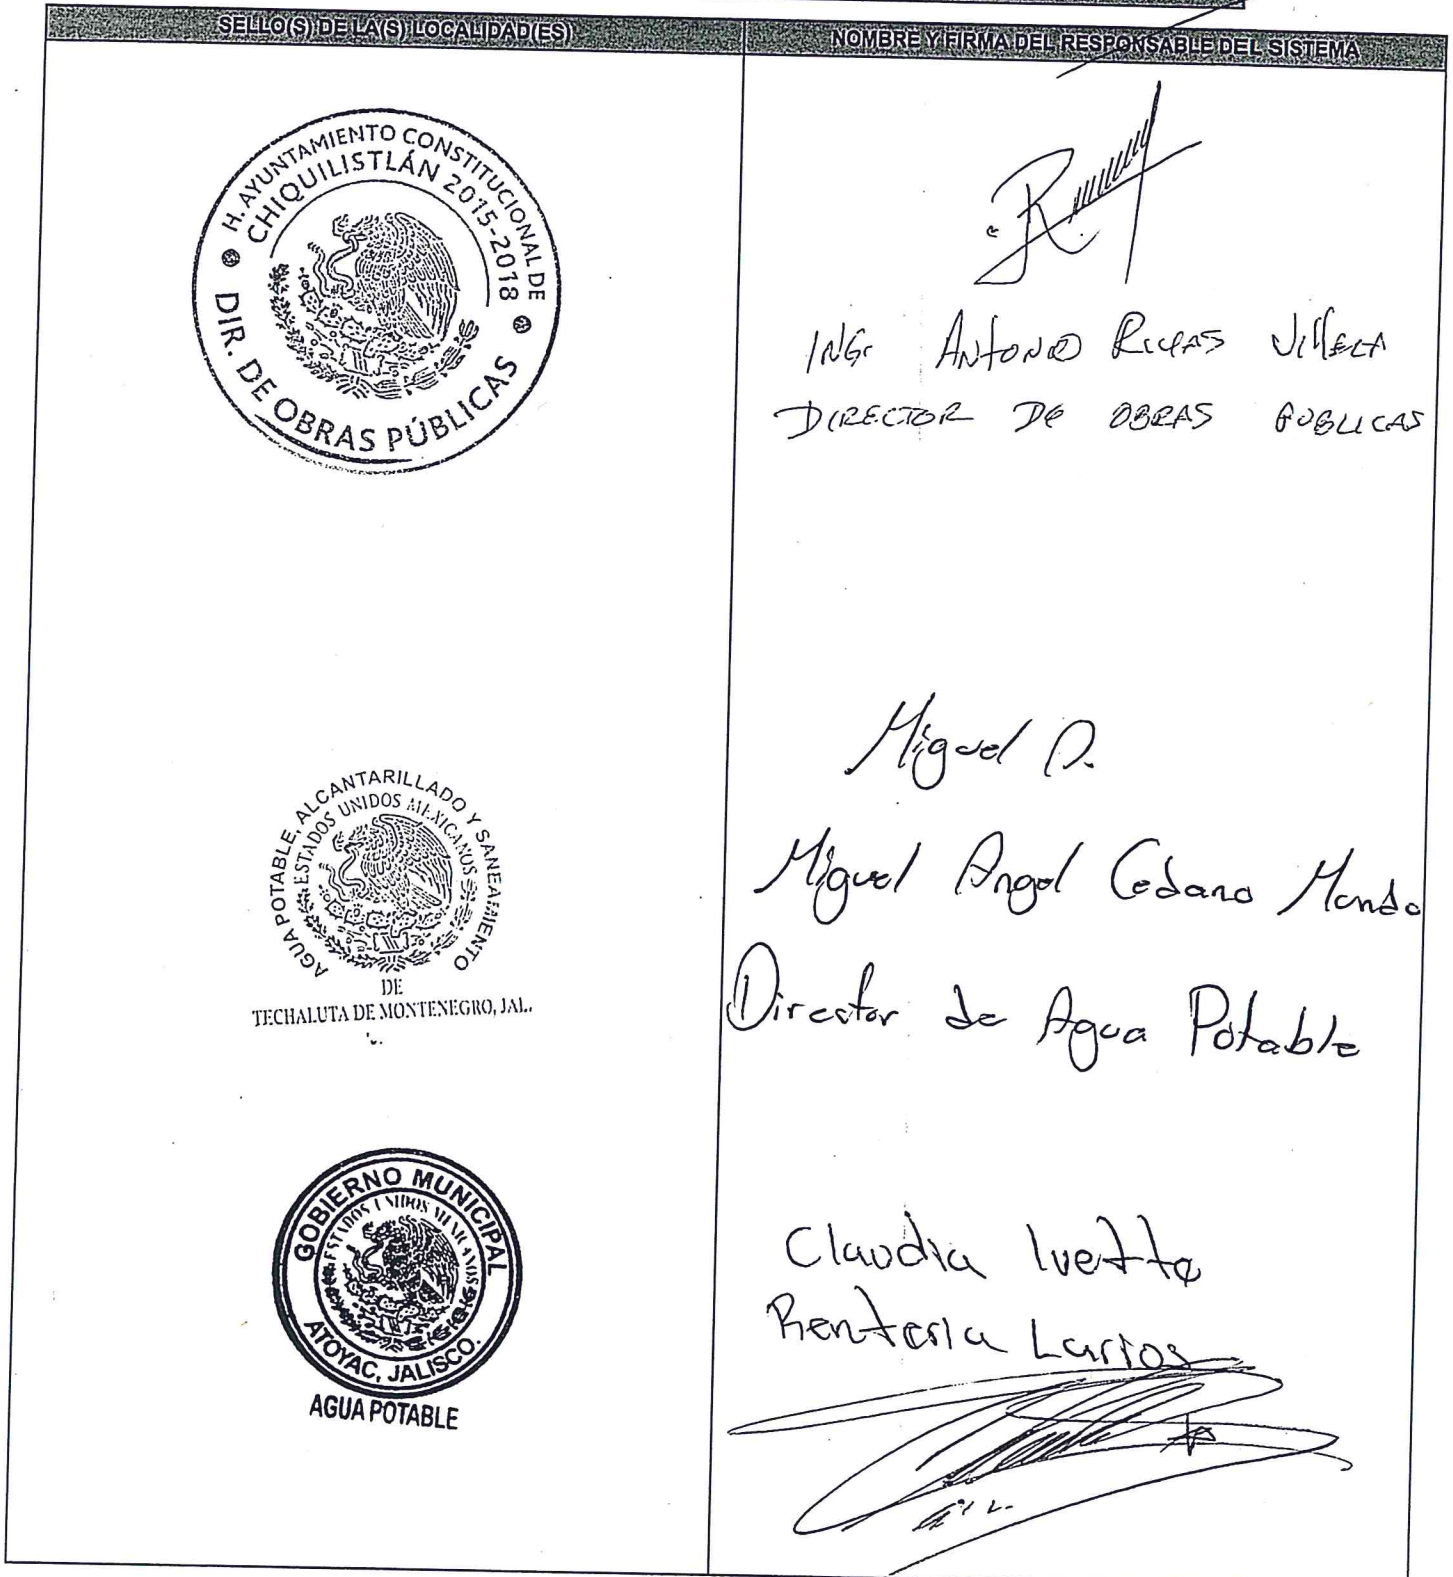 SELLO(S) DE LA(S) LOCALIDAD(ES)
NOMBRE Y FIRMA DEL RESPONSABLE DEL SISTEMA
H. AYUNTAMIENTO CONSTITUCIONAL DE
CHIQUILISTLÁN 2015-2018
DIR. DE OBRAS PÚBLICAS
ING. ANTONIO RIVAS
DIRECTOR DE OBRAS PUBLICAS
AGUA POTABLE, ALCANTARILLADO Y SANEAMIENTO
ESTADOS UNIDOS MEXICANOS
DE
TECHALUTA DE MONTENEGRO, JAL.
Miguel
Miguel Angel Cedano
Director de Agua Potable
GOBIERNO MUNICIPAL
ESTADOS UNIDOS MEXICANOS
ATOYAC, JALISCO.
AGUA POTABLE
Claudia Ivette
Renteria Larios